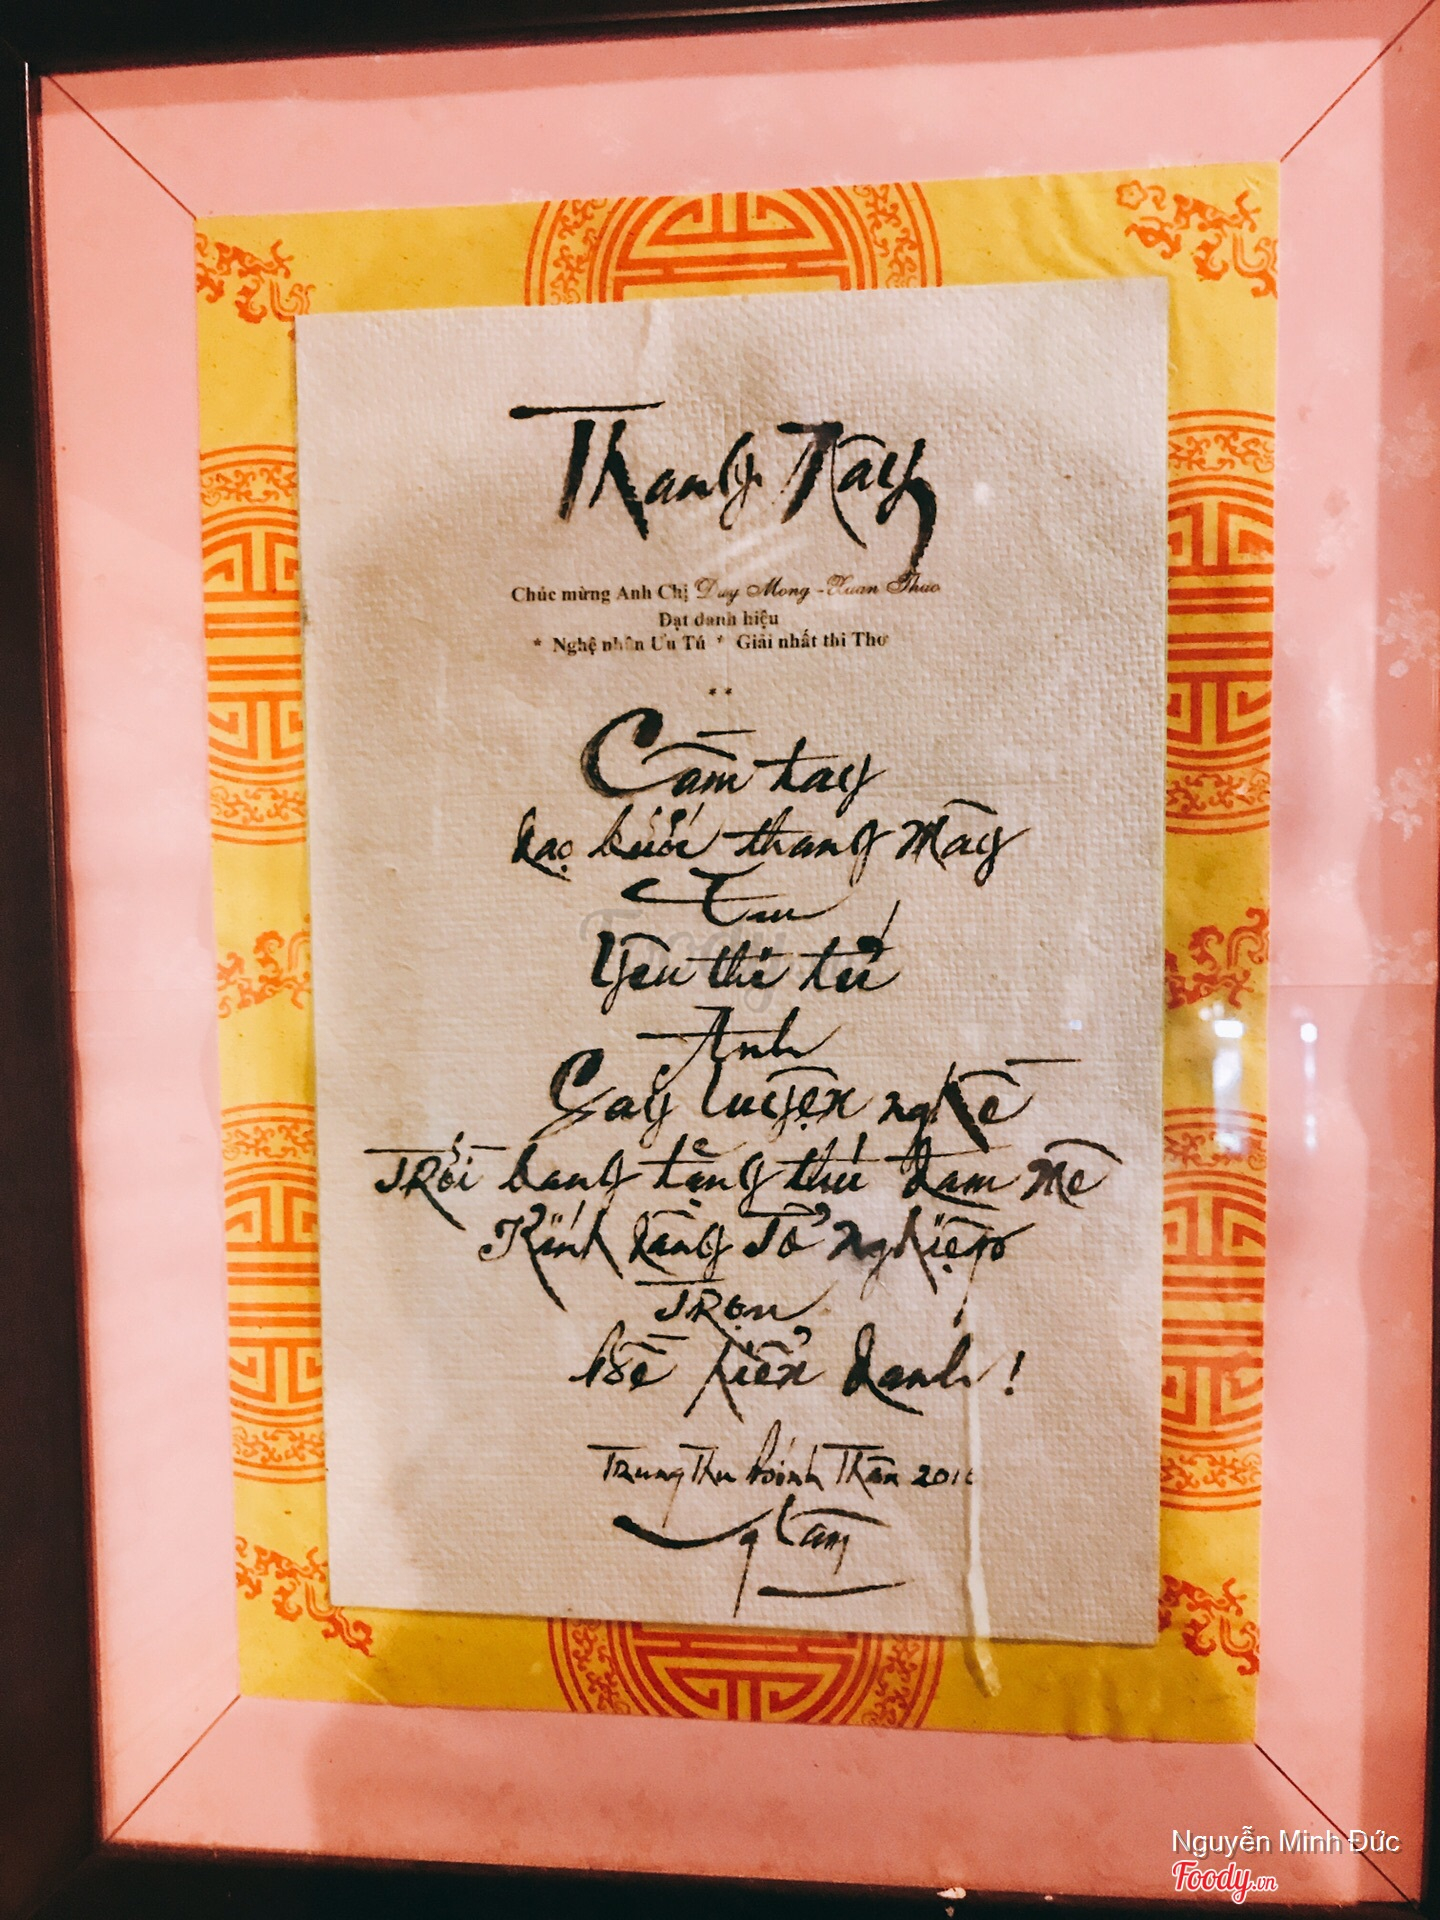 Thang Mây
Chúc mừng Anh Chị Duy Mong - Xuan Thao
Đạt danh hiệu
* Nghệ nhân Ưu Tú * Giải nhất thi Thơ
* *
Cầm tay
dạo bước thang Mây
Em
Yêu thi tứ
Anh
Say luyện nghề
Trổi bang tặng thú đam mê
Kính dâng Tổ nghiệp
Trọn
bề hiển danh!
Trung Thu Bính Thân 2016
Foody
Nguyễn Minh Đức
Foody.vn